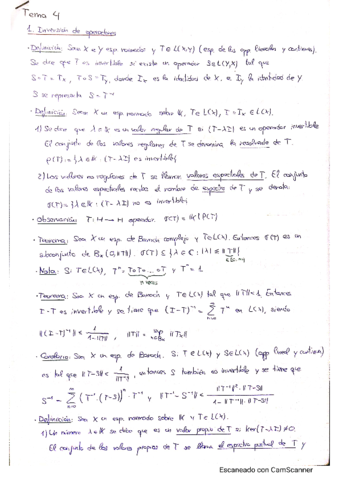 Tema 4
1. Inversión de operadores
· Definición: Sean X e Y esp normados y T∈L(X,Y) (esp de las app lineales y continuas).
Se dice que T es invertible si existe un operador S∈L(Y,X) tal que
S∘T = Iₓ, T∘S = Iᵧ, donde Iₓ es la identidad de X, e Iᵧ la identidad de Y
S se representa S = T⁻¹
· Definición: Sea X un esp normado sobre 𝕂, T∈L(X), I = Iₓ ∈ L(X).
1) Se dice que λ∈𝕂 es un valor regular de T si (T-λI) es un operador invertible
El conjunto de los valores regulares de T se denomina la resolvente de T.
ρ(T) = {λ∈𝕂 : (T-λI) es invertible}
2) Los valores no regulares de T se llaman valores espectrales de T. El conjunto
de los valores espectrales recibe el nombre de espectro de T y se denota:
σ(T) = {λ∈𝕂 : (T-λI) no es invertible}
· Observación: T: H → H operador, σ(T) = 𝕂\ρ(T)
· Teorema: Sea X un esp de Banach complejo y T∈L(X). Entonces σ(T) es un
subconjunto de B_ℂ(0,‖T‖). σ(T) ⊆ {λ∈ℂ : |λ| ≤ ‖T‖}
· Nota: Si T∈L(X), Tⁿ = T∘T∘...∘T y T⁰ = I.
n veces
· Teorema: Sea X un esp de Banach y T∈L(X) tal que ‖T‖<1. Entonces
I-T es invertible y se tiene que (I-T)⁻¹ = ∑_{n=0}^{∞} Tⁿ en L(X), siendo
‖(I-T)⁻¹‖ ≤ 1/(1-‖T‖), ‖T‖ = sup ‖Tx‖
· Corolario: Sea X un esp de Banach. Si T∈L(X) y S∈L(X) (app lineal y continua)
es tal que ‖T-S‖ < 1/‖T⁻¹‖, entonces S también es invertible y se tiene que
S⁻¹ = ∑_{n=0}^{∞} (T⁻¹·(T-S))ⁿ · T⁻¹ y ‖T⁻¹-S⁻¹‖ ≤ ‖T⁻¹‖²·‖T-S‖ / (1-‖T⁻¹‖·‖T-S‖)
· Definición: Sea X un esp normado sobre 𝕂 y T∈L(X).
1) Un número λ∈𝕂 se dice que es un valor propio de T si ker(T-λI)≠0.
El conjunto de los valores propios de T se llama el espectro puntual de T y
Escaneado con CamScanner